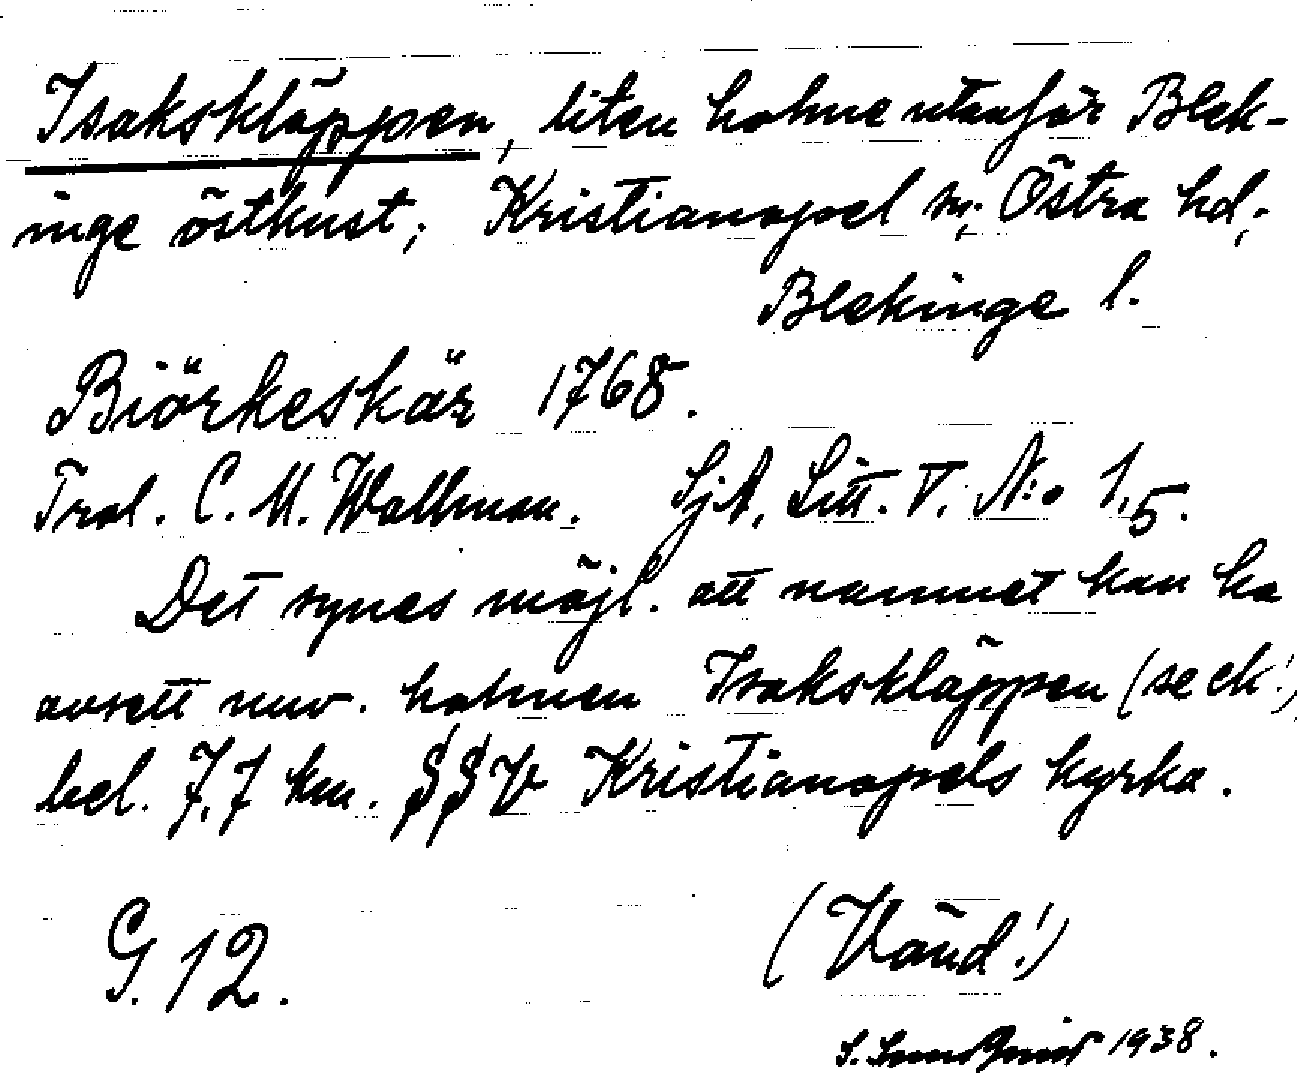 Isakskläppen, liten holme utanför Blek-
inge östkust; Kristianopel sn; Östra hd,
Blekinge l.
Biörkeskär 1768.
Tral. C. M. Wallman. SjA, Litt. V. N:o 1,5.
Det synes möjl. att namnet kan ha
avsett nuv. holmen Isakskläppen (se ek!)
bel. 7,7 km. SSV Kristianopels kyrka.
G. 12.
(Vänd!)
S. 1938.